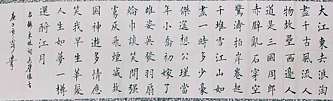 大江東去浪淘
盡千古風流人
物故壘西邊人
道是三國周郎
赤壁亂石穿空
驚濤拍岸卷起
千堆雪江山如
畫一時多少豪
傑遙想公瑾當
年小喬初嫁了
雄姿英發羽扇
綸巾談笑間
灰飛煙滅故
國神遊多情應
笑我早生華髮
人生如夢一樽
還酹江月